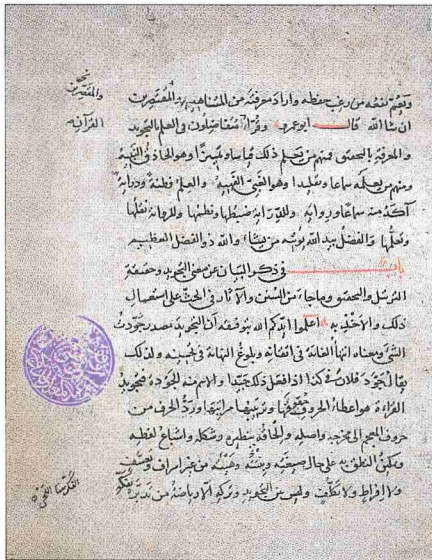 ويعم نفعه من رغب حفظه واراد معرفته من المتناهين والمقتصرين
ان شا الله قال ابو عمرو وقراء القرآن متفاضلون في العلم بالتجويد
والمعرفة بالتحقيق فمنهم من يعلم ذلك قياسا وتمييزا وهو الحاذق النبيه
ومنهم من يعلمه سماعا وتقليدا وهو الغبي الفهيه والعلم فطنة ودراية
آكد منه سماعا ورواية وللدراية ضبطها ونظمها وللرواية نقلها
وتعلمها والفضل بيد الله يؤتيه من يشاء والله ذو الفضل العظيم
باب في ذكر البيان عن معنى التجويد وحقيقة
الترتيل والتحقيق وما جاء من السنن والآثار في الحث على استعمال
ذلك والاخذ به اعلموا ايدكم الله بتوفيقه أن التجويد مصدر جودت
الشئ ومعناه انتهاء الغاية في اتقانه وبلوغ النهاية في تحسينه ولذلك
يقال جود فلان في كذا اذا فعل ذلك جيدا والاسم منه الجودة فتجويد
القراءة هو اعطاء الحروف حقوقها وترتيبها مراتبها ورد الحرف من
حروف المعجم الى مخرجه واصله والحاقه بنظيره وشكله واشباع لفظه
وتمكين النطق به على حال صيغته وهيئته من غير اسراف ولا تعسف
ولا افراط ولا تكلف وليس بين التجويد وتركه الا رياضة من تدبره بفكه
والمقتصرين